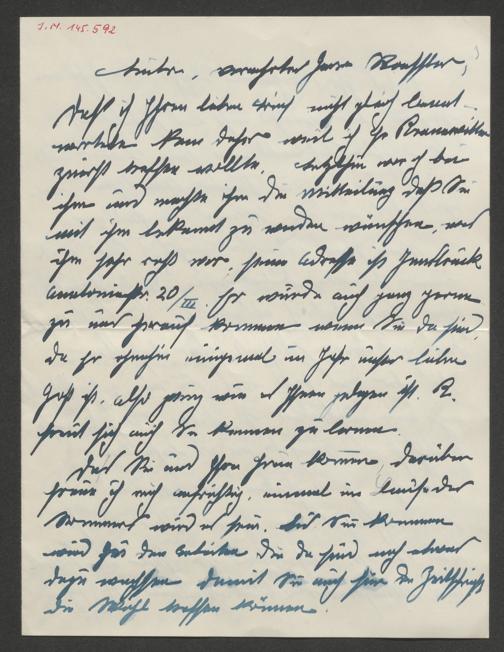 J.N. 145.592
Lieber, verehrter Herr Roessler,
Daß ich Ihren lieben Brief nicht gleich beant-
wortete kam daher weil ich Hr Prannwitter
zuerst treffen wollte. Letzthin war ich bei
ihm und machte ihm die Mitteilung daß Sie
mit ihm bekannt zu werden wünschen, was
ihm sehr recht war, seine Adresse ist Innsbruck
20/III. Er würde auch ganz gerne
zu uns herauf kommen wenn Sie da sind,
da er ohnehin einigemal im Jahr unser lieber
Gast ist, also ganz wie es Ihnen gelegen ist. P.
freut sich auch Sie kennen zu lernen.
Daß Sie und Ihre Frau kommen, darüber
freue ich mich aufrichtig, einmal im Laufe des
Sommers wird es sein. Bis Sie kommen
wird zu den Arbeiten die da sind noch etwas
dazu wachsen damit Sie auch für die Zeitschrift
die Wahl treffen können.